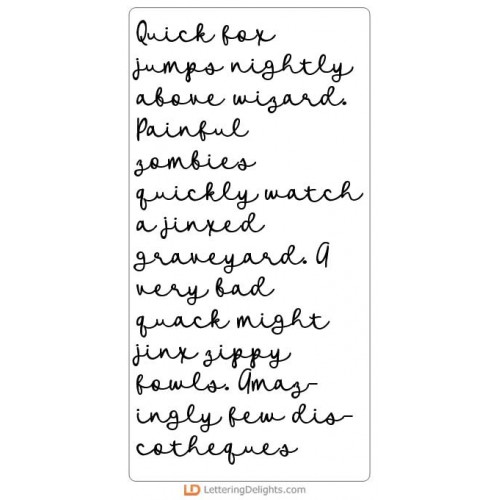 Quick fox
jumps nightly
above wizard.
Painful
zombies
quickly watch
a jinxed
graveyard. A
very bad
quack might
jinx zippy
fowls. Amaz-
ingly few dis-
cotheques
LD LetteringDelights.com